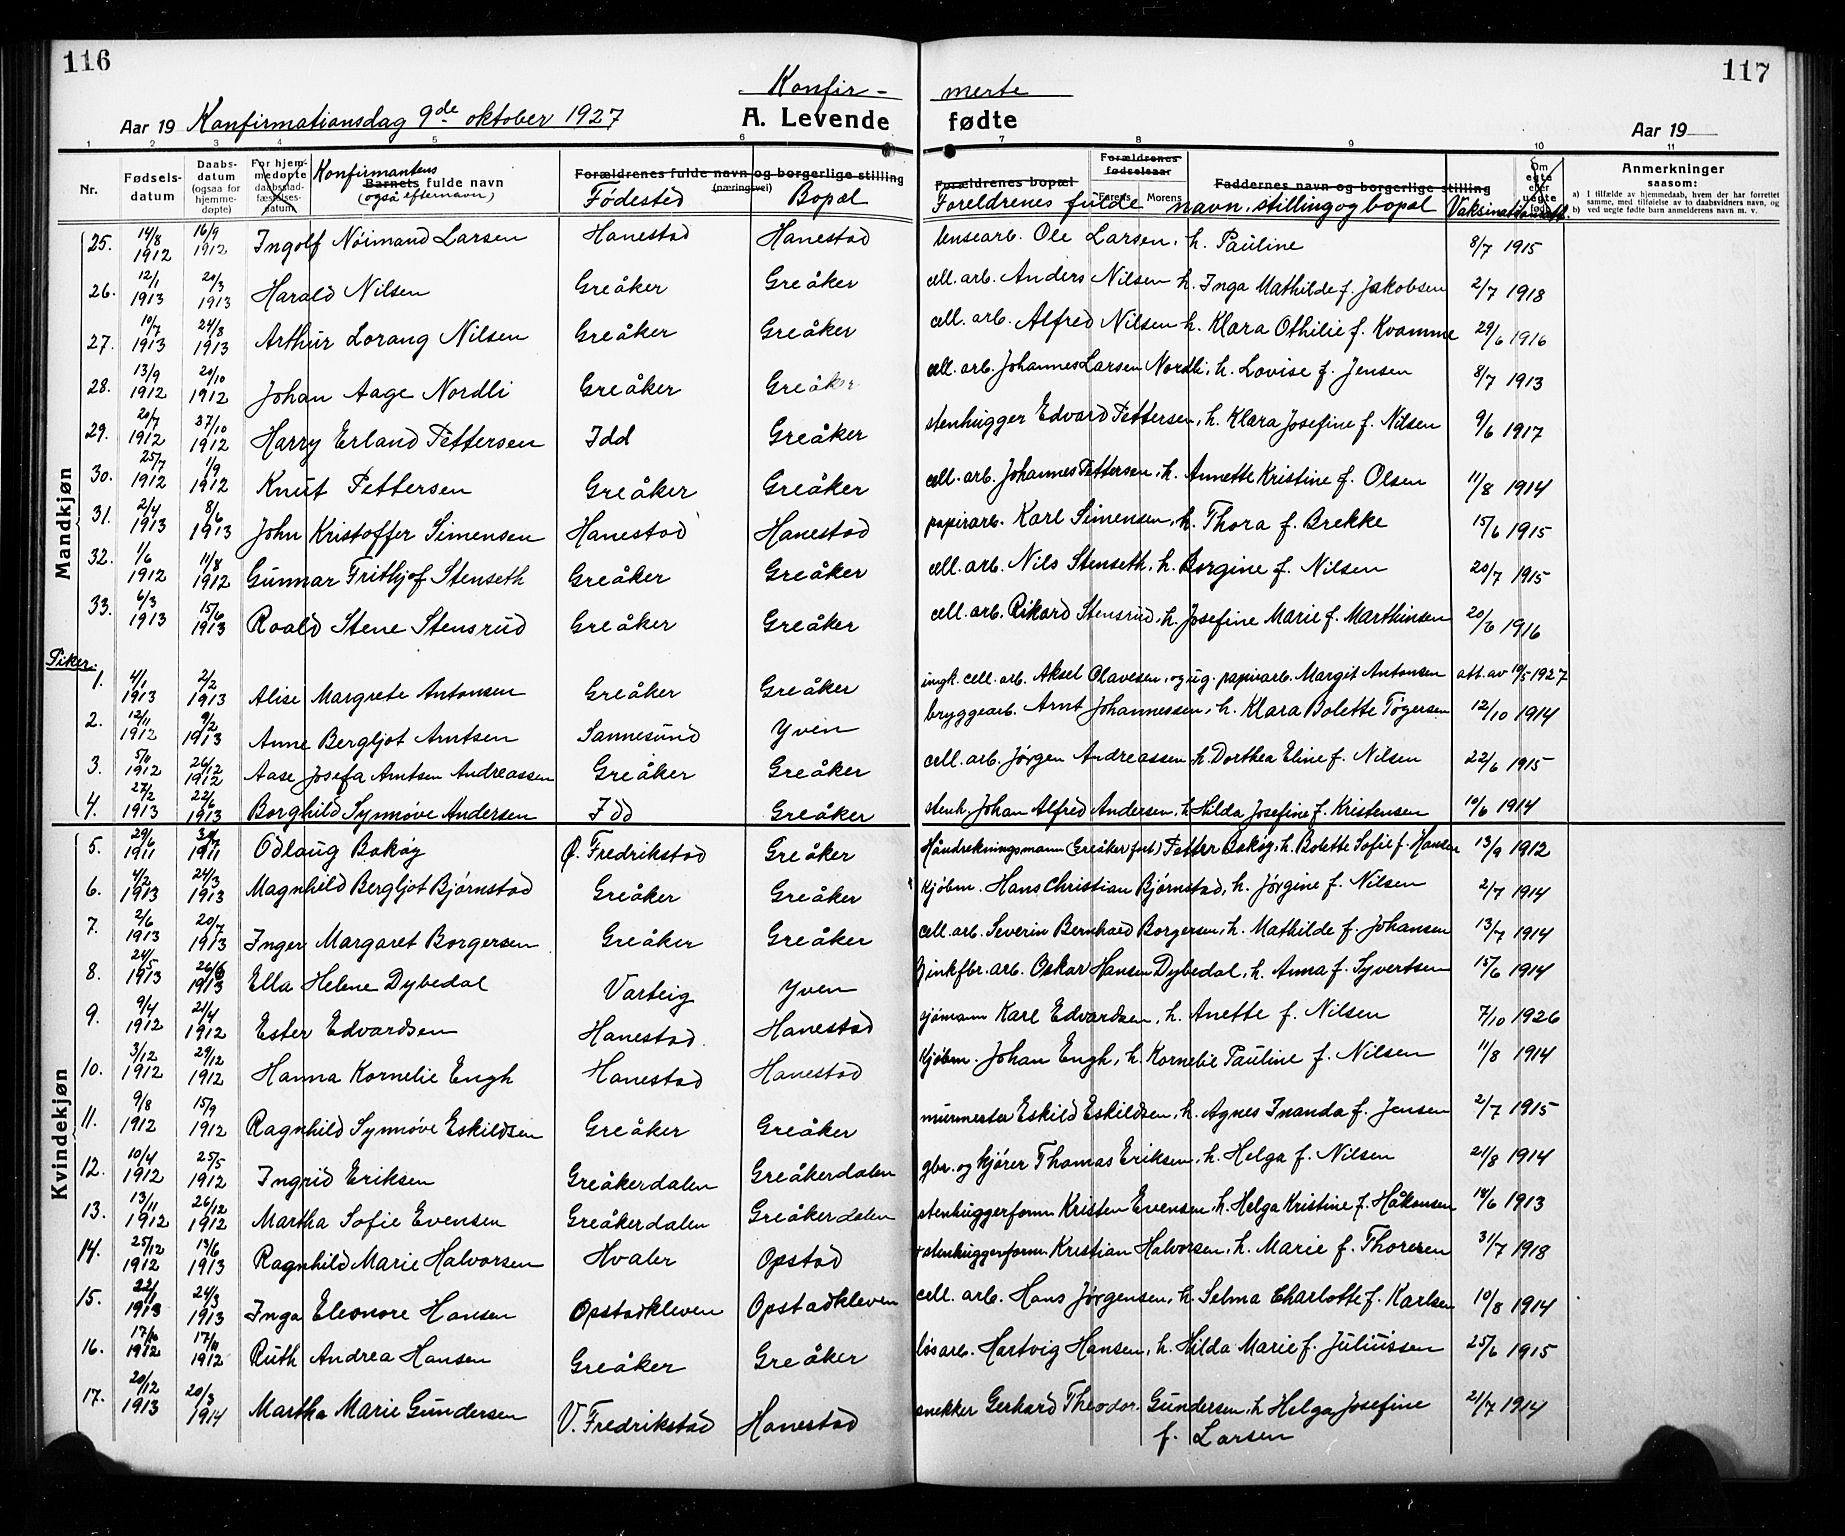 116
117
Konfir- merte
Aar 19 Konfirmationsdag 9de oktober 1927 A. Levende fødte Aar 19
1 2 3 4 5 6 7 8 9 10 11
Nr. Fødsels-datum Daabs-datum (ogsaa for hjemme-døpte) For hjem-medøpte daabsstad-fæstelses-datum Konfirmantens Barnets fulde navn (også efternavn) Forældrenes fulde navn og borgerlige stilling (næringsvei) Fødested Bopæl Forældrenes bopæl Forældrenes fødselsaar Farens Morens Faddernes navn og borgerlige stilling Foreldrenes fulde navn, stilling og bopæl Om egte eller uegte født Vaksinationsatt. Anmerkninger saasom:
a) I tilfælde av hjemmedaab, hvem der har forrettet samme, med tilføielse av to daabsvidners navn, og
b) ved uegte fødte barn anmelderens navn m. v.
Mandkjøn
25. 14/8 1912 16/9 1912 Ingolf Nöimand Larsen Hanestad Hanestad lensearb. Ole Larsen, h. Pauline 8/7 1915
26. 12/1 1913 20/3 1913 Harald Nilsen Greåker Greåker cell. arb. Anders Nilsen h. Inga Mathilde f. Jakobsen 2/7 1918
27. 10/7 1913 24/8 1913 Arthur Lorang Nilsen Greåker Greåker cell. arb. Alfred Nilsen h. Klara Othilie f. Kvamme 29/6 1916
28. 13/9 1912 20/10 1912 Johan Aage Nordli Greåker Greåker cell. arb. Johannes Larsen Nordli, h. Lovise f. Jensen 8/7 1913
29. 20/7 1912 37/10 1912 Harry Erland Pettersen Idd Greåker stenhugger Edvard Pettersen, h. Klara Josefine f. Nilsen 9/6 1917
30. 25/7 1912 1/9 1912 Knut Pettersen Greåker Greåker cell. arb. Johannes Pettersen, h. Annette Kristine f. Olsen 11/8 1914
31. 2/4 1913 8/6 1913 John Kristoffer Simensen Hanestad Hanestad papirarb. Karl Simensen, h. Thora f. Brekke 15/6 1915
32. 1/6 1912 11/8 1912 Gunnar Frithjof Stenseth Greåker Greåker cell. arb. Nils Stenseth, h. Borgine f. Nilsen 20/7 1915
33. 6/3 1913 15/6 1913 Roald Stene Stensrud Greåker Greåker cell. arb. Rikard Stensrud, h. Josefine Marie f. Marthinsen 20/6 1916
Piker:
1. 4/1 1913 2/2 1913 Alise Margrete Antonsen Greåker Greåker ungk. cell. arb. Aksel Olavesen, og ug. papirarb. Margit Antonsen att. av 10/5 1927
2. 12/11 1912 9/2 1913 Anne Bergljot Arntsen Sannesund Yven bryggearb. Arnt Johannessen, h. Klara Bolette Tögersen 12/10 1914
3. 1912 26/12 1912 Aase Josefa Arntsen Andreassen Greåker Greåker cell. arb. Jørgen Andreassen h. Dorthea Eline f. Nilsen 22/6 1915
4. 27/2 1913 22/6 1913 Borghild Synnøve Andersen Idd Greåker stenh. Johan Alfred Andersen, h. Hilda Josefine f. Kristensen 10/6 1914
Kvindekjøn
5. 29/6 1911 1911 Odlaug Bakøy Ø. Fredrikstad Greåker Håndrekningsmann (Greåker fort) Petter Bakøy, h. Bolette Sofie f. Hansen 13/9 1912
6. 4/2 1913 24/3 1913 Magnhild Bergljot Bjørnstad Greåker Greåker kjøbm. Hans Christian Bjørnstad, h. Jørgine f. Nilsen 2/7 1914
7. 2/6 1913 20/7 1913 Inger Margaret Borgersen Greåker Greåker cell. arb. Severin Bernhard Borgersen, h. Mathilde f. Johansen 13/7 1914
8. 24/5 1913 1913 Ella Helene Dybedal Varteig Yven zinkfbr. arb. Oskar Hansen Dybedal, h. Anna f. Syvertsen 15/6 1914
9. 9/4 1912 21/4 1912 Ester Edvardsen Hanestad Hanestad sjømann Karl Edvardsen, h. Anette f. Nilsen 7/10 1926
10. 3/12 1912 29/12 1912 Hanna Kornelie Engh Hanestad Hanestad kjøbm. Johan Engh, h. Kornelie Pauline f. Nilsen 11/8 1914
11. 9/8 1912 15/9 1912 Ragnhild Synnøve Eskildsen Greåker Greåker murmester Eskild Eskildsen, h. Agnes Inanda f. Jensen 2/7 1915
12. 10/4 1912 25/5 1912 Ingrid Eriksen Greåkerdalen Greåkerdalen gbr. og kjører Thomas Eriksen, h. Helga f. Nilsen 21/8 1914
13. 13/11 1912 26/12 1912 Martha Sofie Evensen Greåkerdalen Greåkerdalen stenhuggerform Kristen Evensen, h. Helga Kristine f. Håkonsen 18/6 1913
14. 25/12 1912 13/6 1913 Ragnhild Marie Halvorsen Hvaler Opstad stenhuggerform Kristian Halvorsen, h. Marie f. Thoresen 31/7 1918
15. 22/1 1913 24/3 1913 Inga Eleonore Hansen Opstadkleven Opstadkleven cell. arb. Hans Jørgensen, h. Selma Charlotte f. Karlsen 10/8 1914
16. 1912 1912 Ruth Andrea Hansen Greåker Greåker løsarb. Hartvig Hansen, h. Hilda Marie f. Juliussen 25/6 1915
17. 20/12 1913 20/3 1914 Martha Marie Gundersen V. Fredrikstad Hanestad snekker Gerhard Theodor Gundersen, h Helga Josefine 21/7 1914
f. Larsen